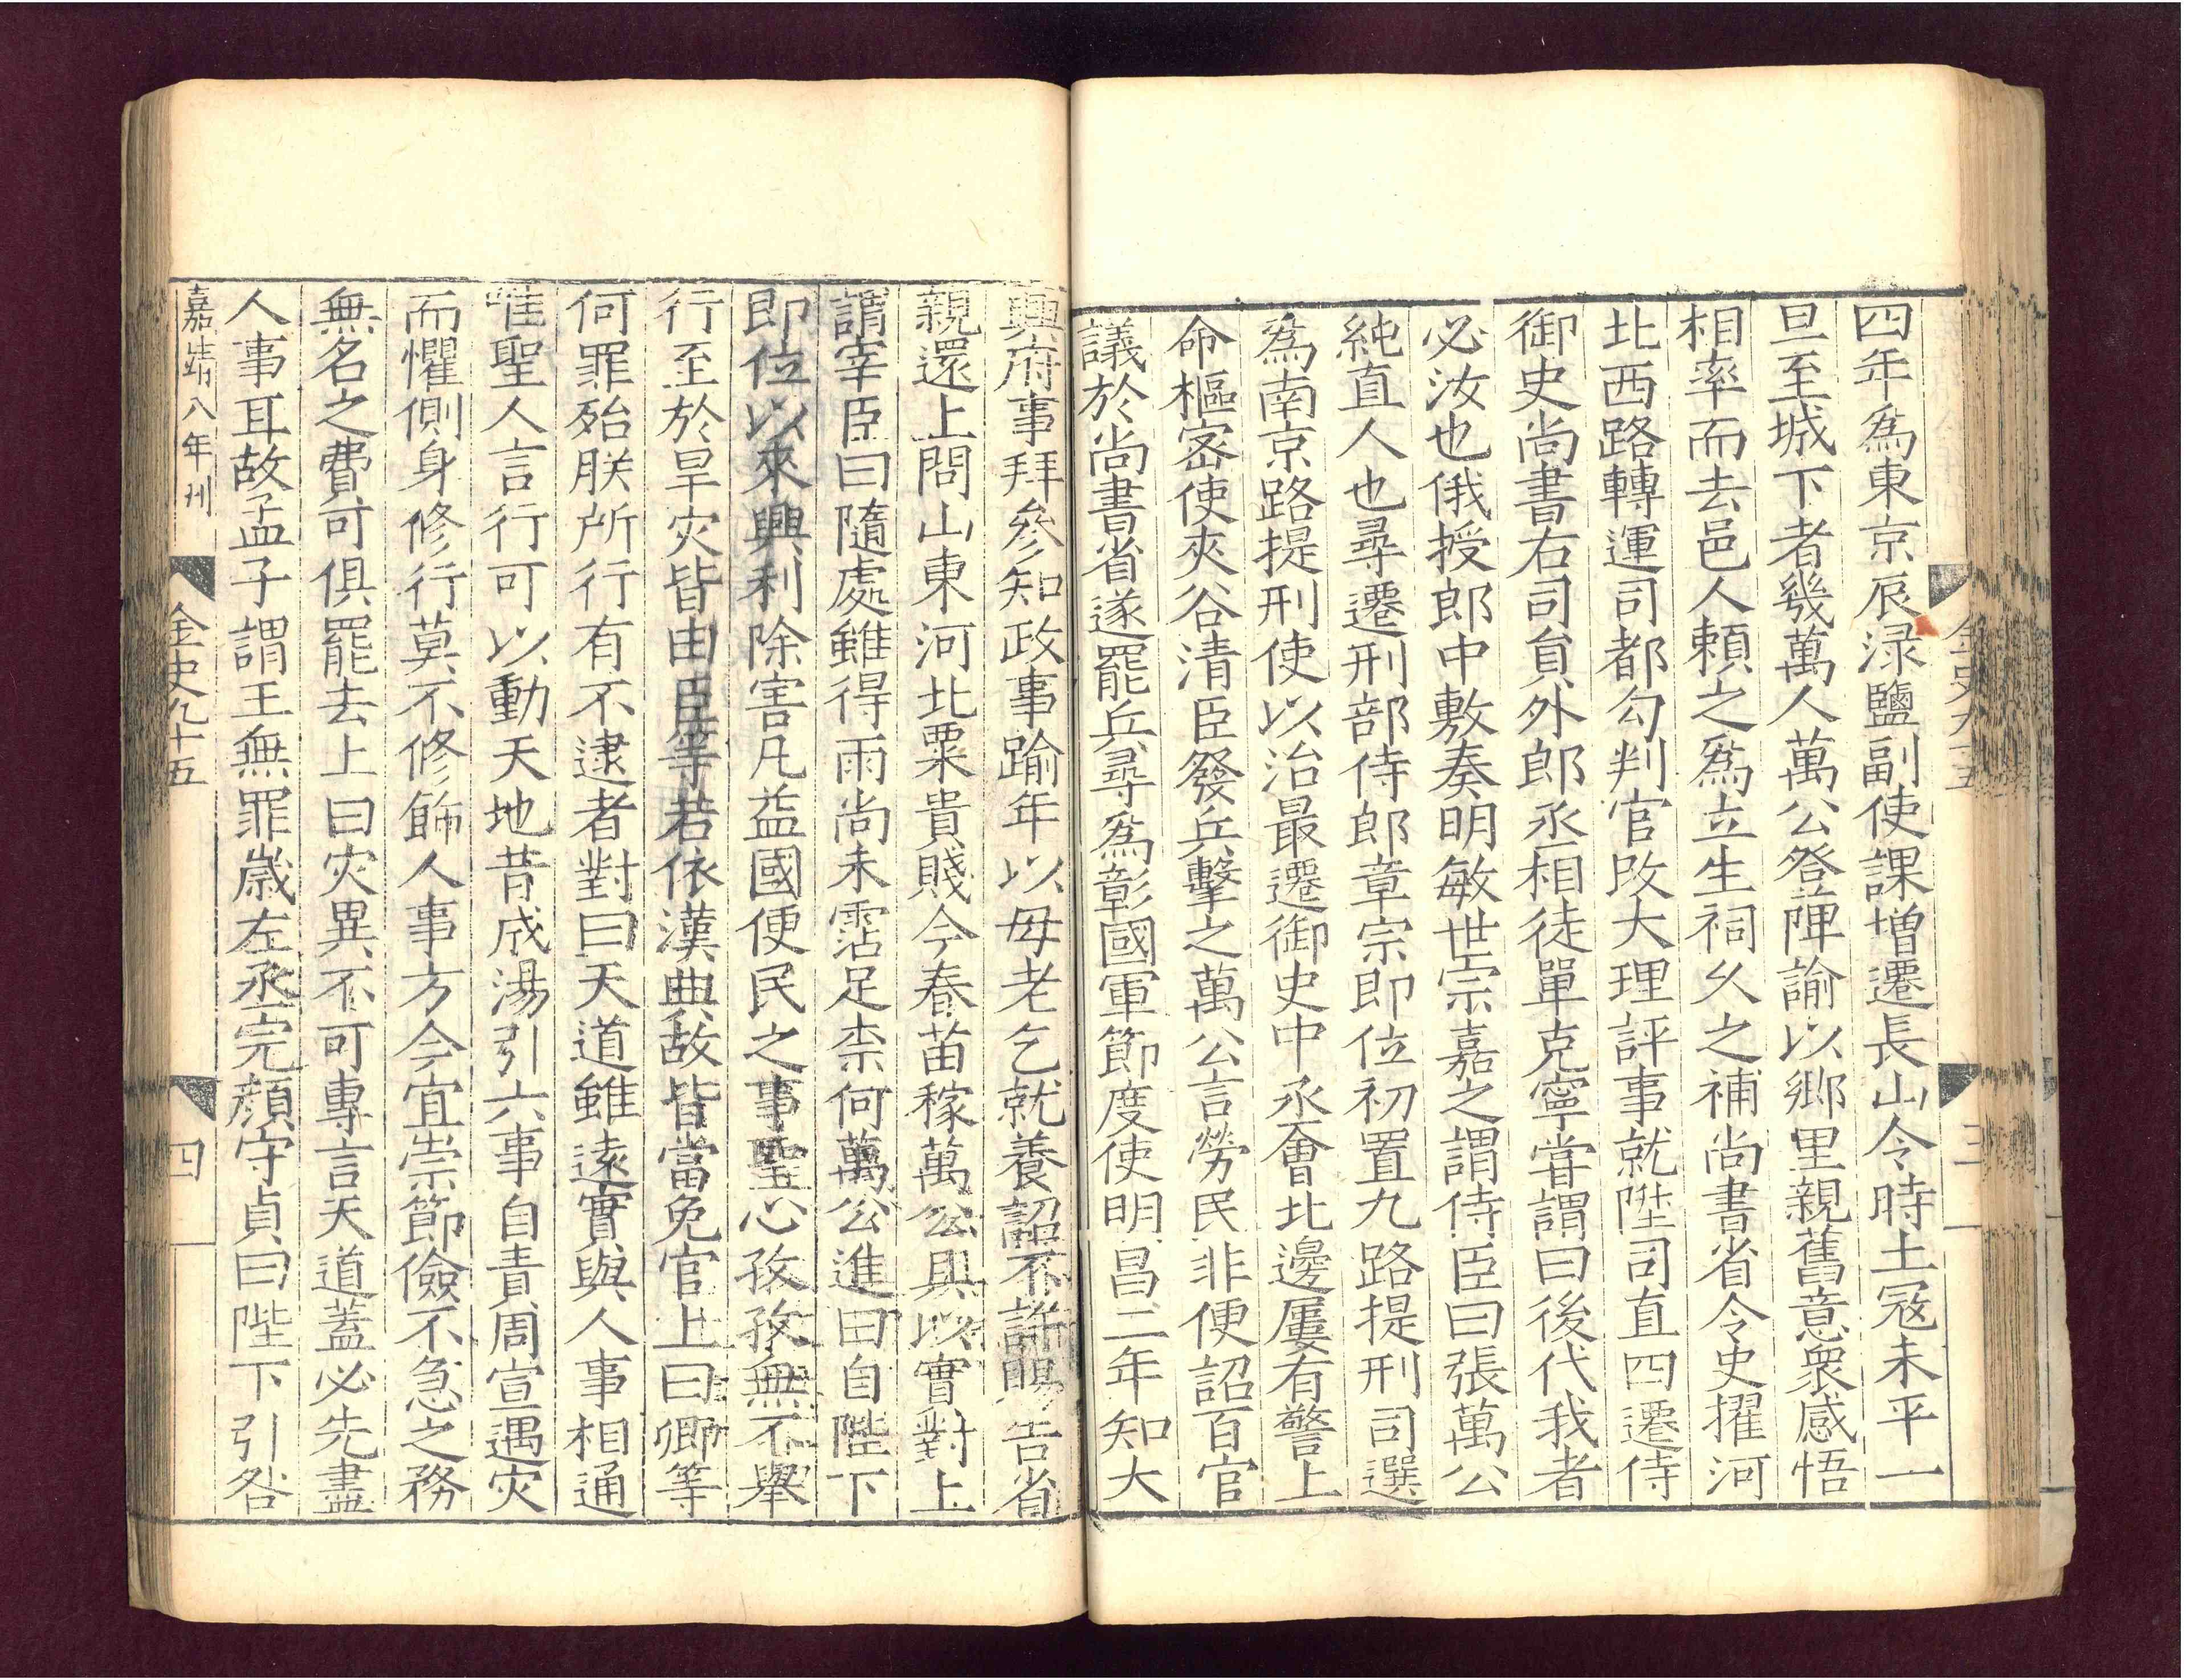 四年為東京辰渌鹽副使課增遷長山令時土冦未平一
旦至城下者幾萬人萬公登陴諭以鄉里親舊意衆感悟
相率而去邑人賴之為立生祠乆之補尚書省令史擢河
北西路轉運司都勾判官改大理評事就陞司直四遷侍
御史尚書右司貟外郎丞相徒單克寧甞謂曰後代我者
必汝也俄授郎中敷奏明敏世宗嘉之謂侍臣曰張萬公
純直人也尋遷刑部侍郎章宗即位初置九路提刑司選
為南京路提刑使以治最遷御史中丞㑹北邊屢有警上
命樞宻使夾谷清臣發兵擊之萬公言勞民非便詔百官
議於尚書省遂罷兵尋為彰國軍節度使明昌二年知大
興府事拜參知政事踰年以母老乞就養詔不許賜告省
親還上問山東河北粟貴賤今春苗稼萬公具以實對上
謂宰臣曰隨處雖得雨尚未霑足柰何萬公進曰自陛下
即位以來興利除害凡益國便民之事聖心孜孜無不舉
行至於旱灾皆由臣等若依漢典故皆當免官上曰卿等
何罪殆朕所行有不逮者對曰天道雖遠實與人事相通
唯聖人言行可以動天地昔成湯引六事自責周宣遇灾
而懼側身修行莫不修飾人事方今宜崇節儉不急之務
無名之費可俱罷去上曰灾異不可專言天道蓋必先盡
人事耳故孟子謂王無罪歳左丞完顏守貞曰陛下引咎
嘉靖八年刊
金史九十五
四
金史九十五
三